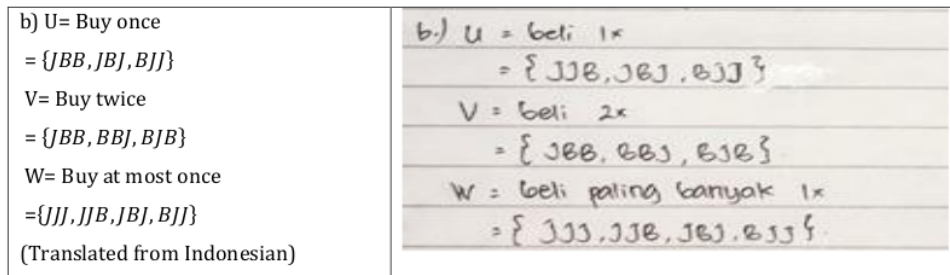 b) U= Buy once
= {JBB, JBJ, BJJ}
V= Buy twice
= {JBB, BBJ, BJB}
W= Buy at most once
={JJJ, JJB, JBJ, BJJ}
(Translated from Indonesian)
b.) U = beli 1x
= { JJB, JBJ, BJJ }
V = beli 2x
= { JBB, BBJ, BJB }
W = beli paling banyak 1x
= { JJJ, JJB, JBJ, BJJ }